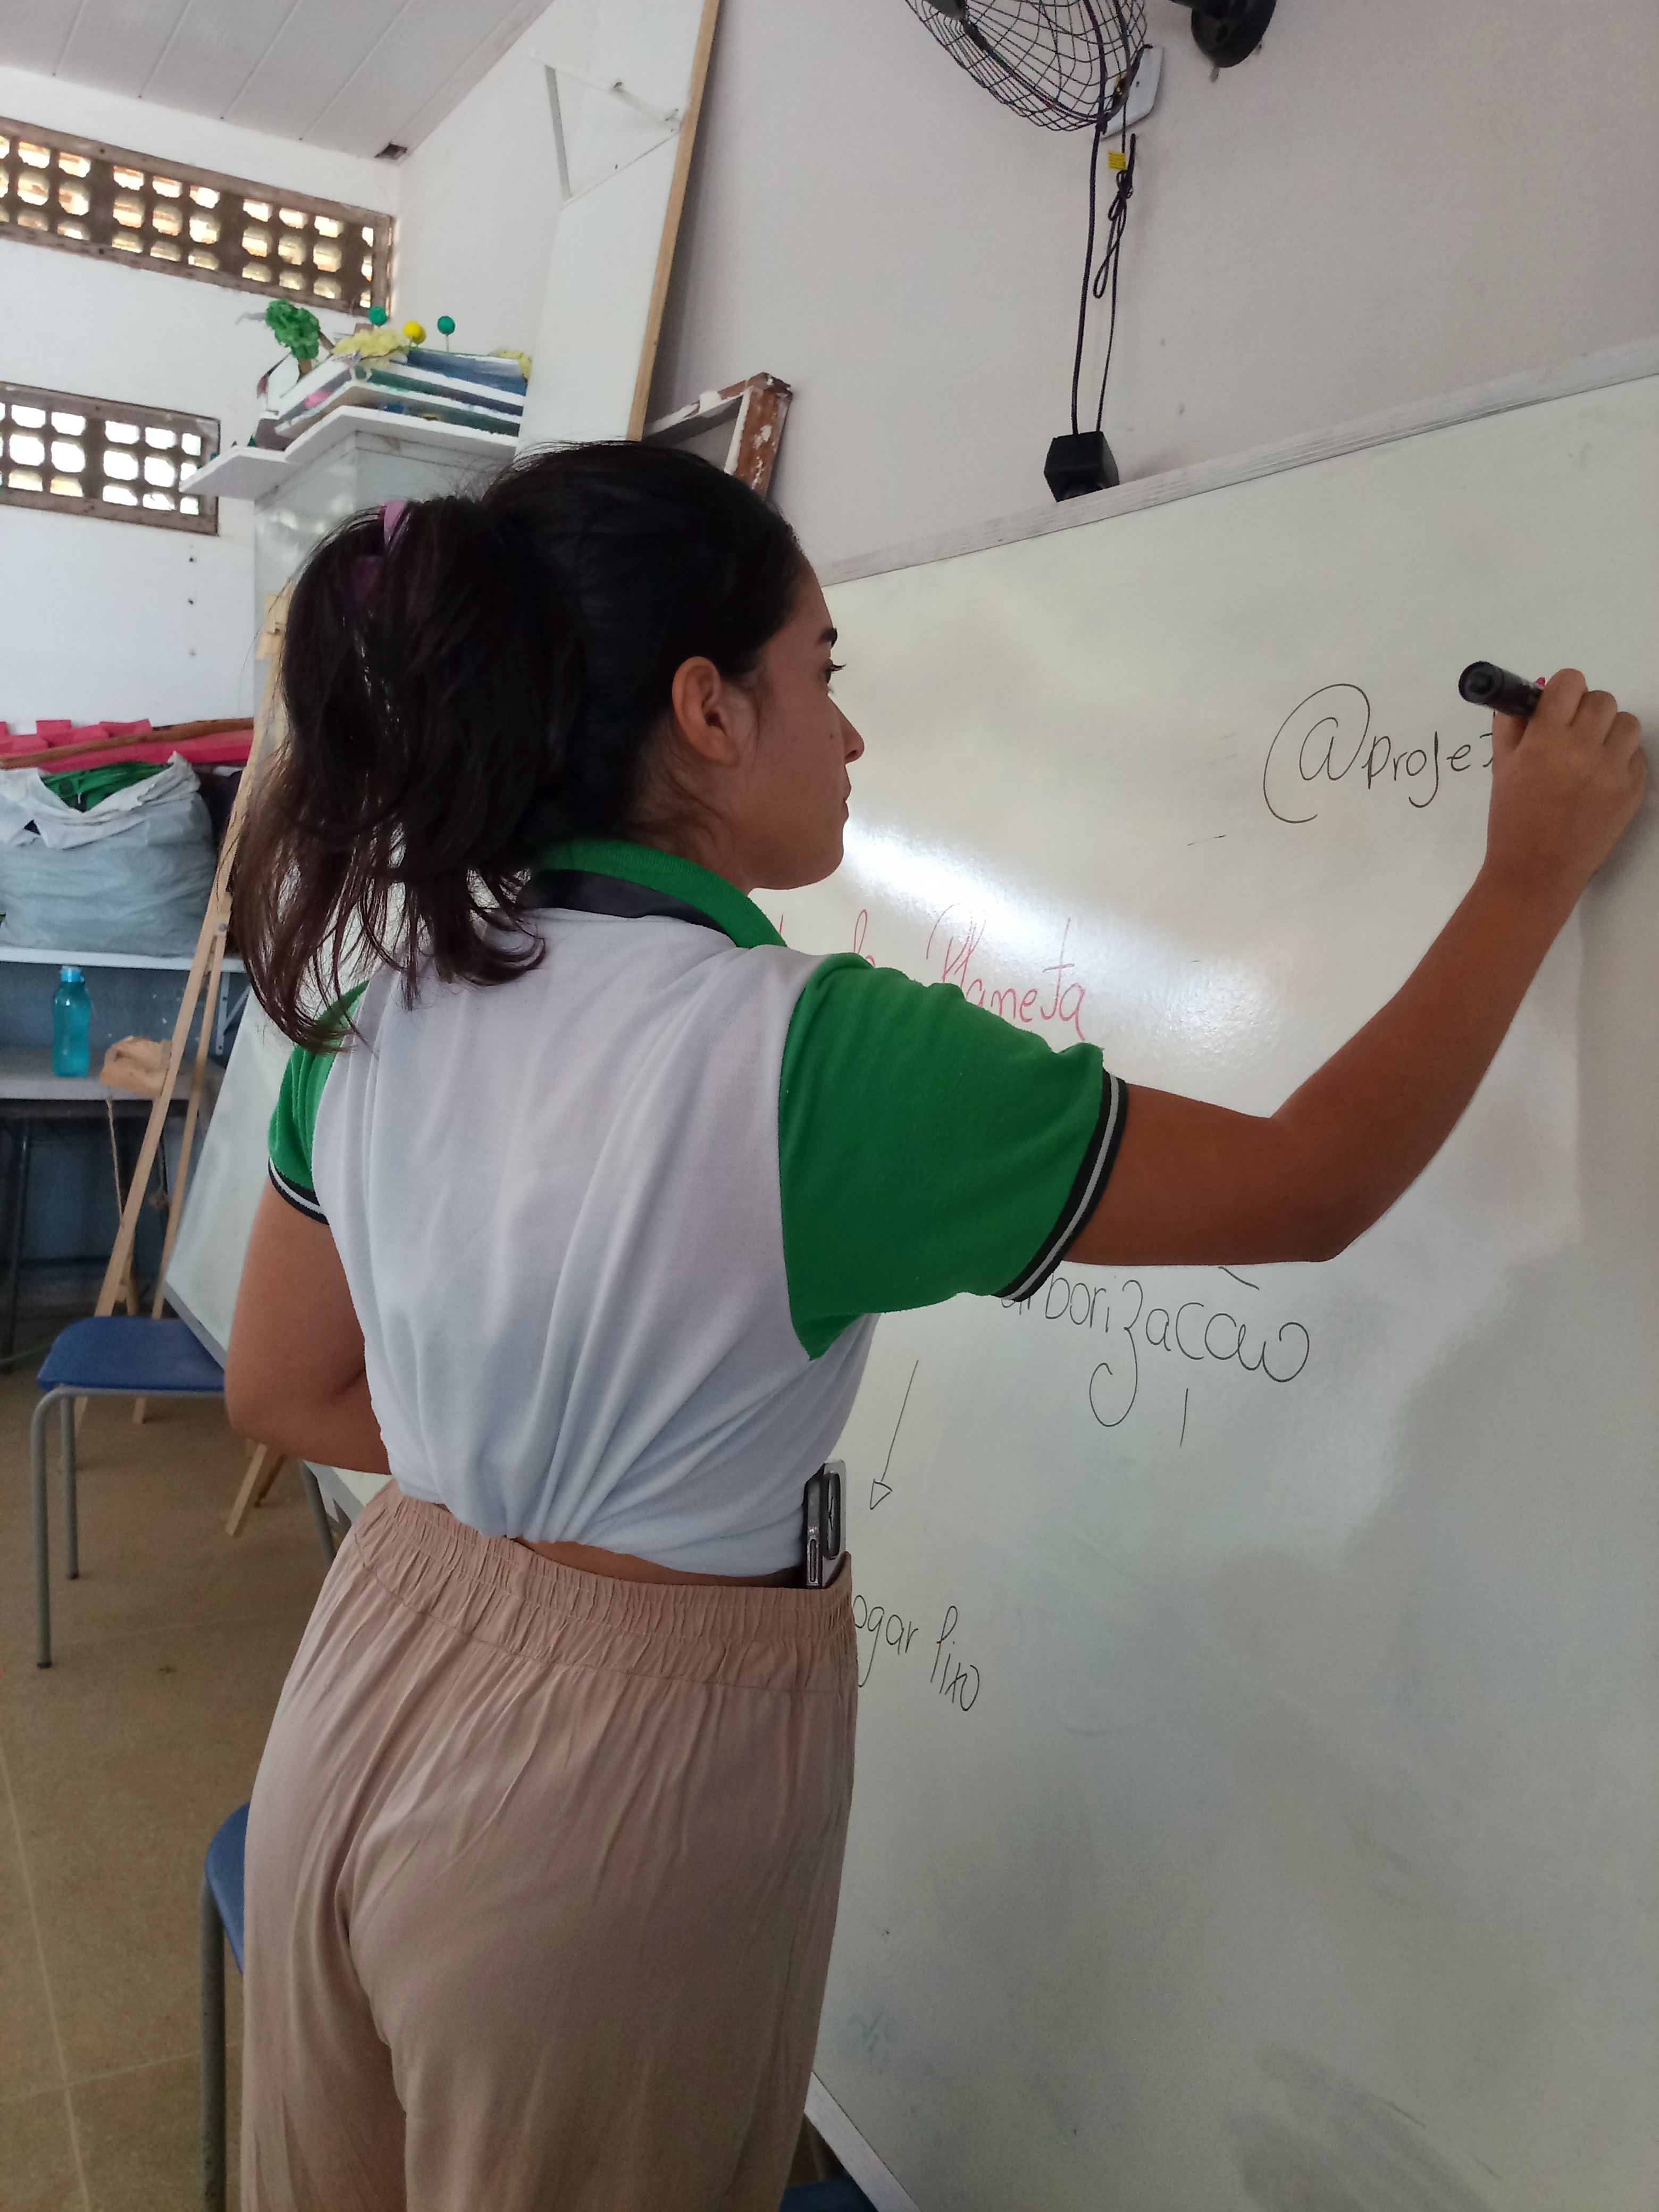 @proje
Planeta
arborização
ogar lixo